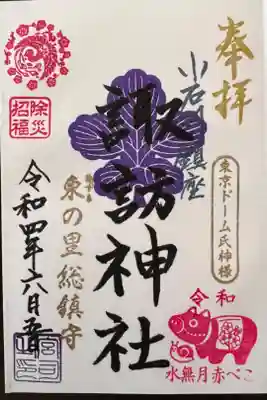 奉拝
小石川鎮座
東京ドーム氏神様
諏訪神社
東の里総鎮守
除災
招福
令和四年六月吉日
令和
水無月赤べこ